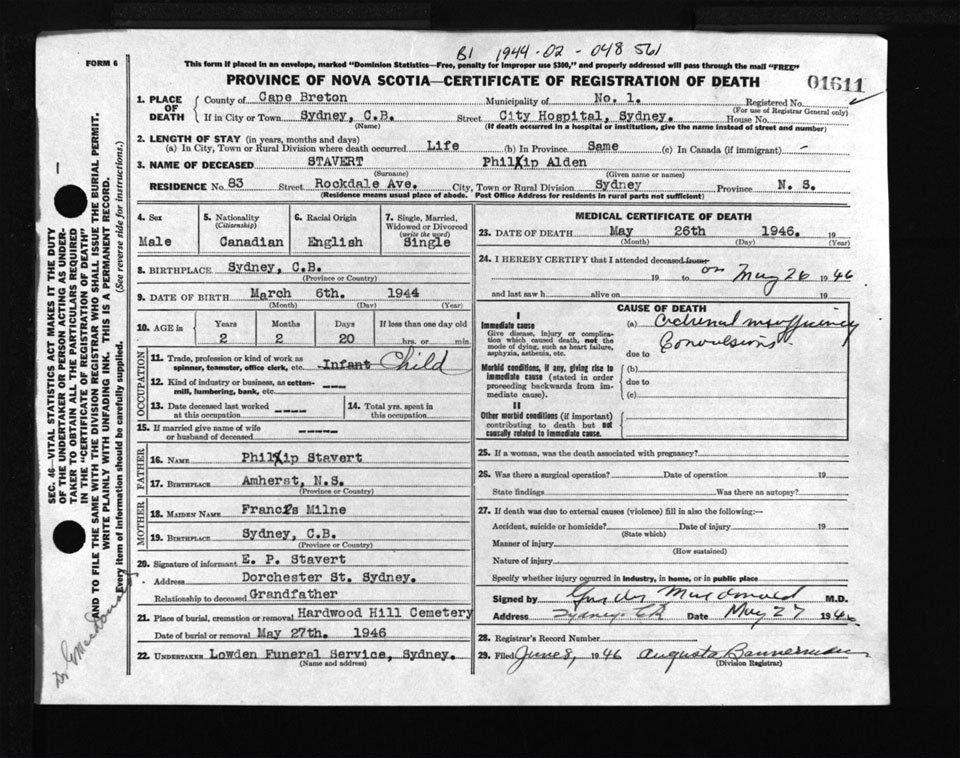 B1 1944-02-048561
FORM 6
This form if placed in an envelope, marked "Dominion Statistics—Free, penalty for improper use $300," and properly addressed will pass through the mail "FREE"
PROVINCE OF NOVA SCOTIA—CERTIFICATE OF REGISTRATION OF DEATH 01611
1. PLACE OF DEATH { County of Cape Breton Municipality of No. 1. Registered No.
(For use of Registrar General only)
If in City or Town Sydney, C.B. Street City Hospital, Sydney. House No.
(Name) (If death occurred in a hospital or institution, give the name instead of street and number)
2. LENGTH OF STAY (in years, months and days)
(a) In City, Town or Rural Division where death occurred Life (b) In Province Same (c) In Canada (if immigrant) -
3. NAME OF DECEASED STAVERT Philip Alden
(Surname) (Given name or names)
RESIDENCE No. 83 Street Rockdale Ave. City, Town or Rural Division Sydney Province N. S.
(Residence means usual place of abode. Post Office Address for residents in rural parts not sufficient)
4. Sex 5. Nationality 6. Racial Origin 7. Single, Married,
(Citizenship) Widowed or Divorced
(write the word)
Male Canadian English Single
8. BIRTHPLACE Sydney, C.B.
(Province or Country)
9. DATE OF BIRTH March 6th. 1944
(Month) (Day) (Year)
10. AGE in Years Months Days If less than one day old
2 2 20 hrs. or min.
OCCUPATION
11. Trade, profession or kind of work as
spinner, teamster, office clerk, etc. Infant Child
12. Kind of industry or business, as cotton-
mill, lumbering, bank, etc. ----
13. Date deceased last worked
at this occupation ----
14. Total yrs. spent in
this occupation
15. If married give name of wife
or husband of deceased ----
FATHER
16. NAME Philip Stavert
17. BIRTHPLACE Amherst, N.S.
(Province or Country)
MOTHER
18. MAIDEN NAME Francis Milne
19. BIRTHPLACE Sydney, C.B.
(Province or Country)
20. Signature of informant E. P. Stavert
Address Dorchester St. Sydney.
Relationship to deceased Grandfather
21. Place of burial, cremation or removal Hardwood Hill Cemetery
Date of burial or removal May 27th. 1946
22. UNDERTAKER Lowden Funeral Service, Sydney.
(Name and address)
MEDICAL CERTIFICATE OF DEATH
23. DATE OF DEATH May 26th 1946. 19
(Month) (Day) (Year)
24. I HEREBY CERTIFY that I attended deceased from
19 to on May 26 1946
and last saw h alive on 19
CAUSE OF DEATH
I
Immediate cause
Give disease, injury or complica-
tion which caused death, not the
mode of dying, such as heart failure,
asphyxia, asthenia, etc.
(a) Adrenal insufficiency
Convulsions
due to
Morbid conditions, if any, giving rise to
immediate cause (stated in order
proceeding backwards from im-
mediate cause).
(b)
due to
(c)
II
Other morbid conditions (if important)
contributing to death but not
causally related to immediate cause.
25. If a woman, was the death associated with pregnancy?
26. Was there a surgical operation? Date of operation 19
State findings Was there an autopsy?
27. If death was due to external causes (violence) fill in also the following:—
Accident, suicide or homicide? Date of injury 19
(State which)
Manner of injury
(How sustained)
Nature of injury
Specify whether injury occurred in industry, in home, or in public place
Signed by Macdonald M.D.
Address Sydney Date May 27 1946
28. Registrar's Record Number
29. Filed June 8, 1946 Augusta Bannerman
(Division Registrar)
SEC. 46—VITAL STATISTICS ACT MAKES IT THE DUTY
OF THE UNDERTAKER OR PERSON ACTING AS UNDER-
TAKER TO OBTAIN ALL THE PARTICULARS REQUIRED
IN THE "CERTIFICATE OF REGISTRATION OF DEATH"
AND TO FILE THE SAME WITH THE DIVISION REGISTRAR WHO SHALL ISSUE THE BURIAL PERMIT.
WRITE PLAINLY WITH UNFADING INK. THIS IS A PERMANENT RECORD.
Every item of information should be carefully supplied. (See reverse side for instructions.)
Dr G Macdonald